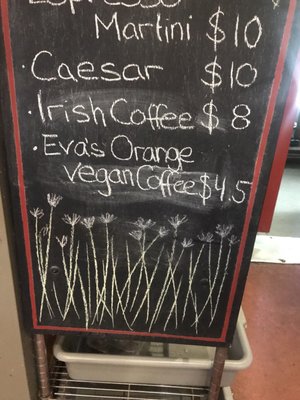 Espresso
Martini $10
· Caesar $10
· Irish Coffee $8
· Eva's Orange
Vegan Coffee $4.5